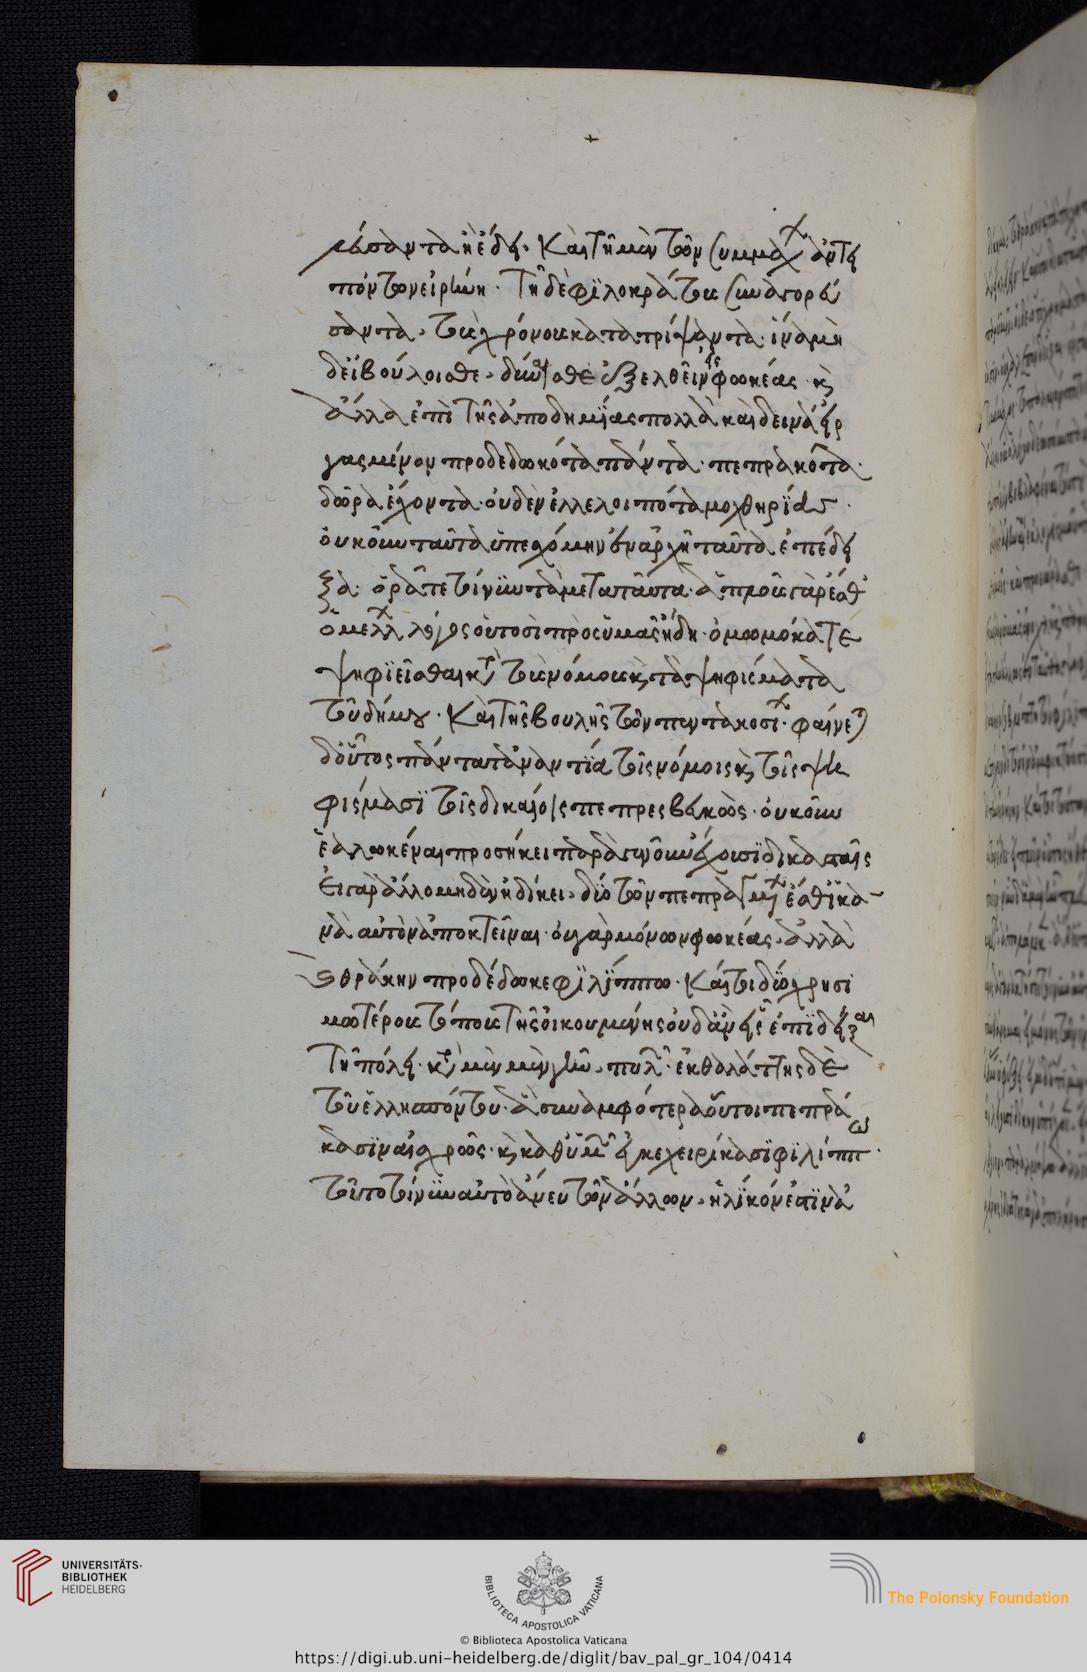 +
σύσαντα ἠ ἔδει. Καὶ τῇ μὲν τῶν συμμάχ ἀντει
πόντον εἰρήνη. τῇ δὲ φϊλοκράτους συναγορεύ
σαντα. τοὺς χρόνους κατατρίψαντα. ἵνα μὴ
δεΐ βούλοισθε. δύνησθε ἐξελθεῖν εἰς φωκέας. κ̀
ἄλλα ἐπὶ τῆς ἀποδημΐας πολλὰ καὶ δεινὰ εἰρ
γασμένον προδεδωκότα πάντα. πεπρακότα.
δῶρα ἔχοντα. οὐδὲν ἐλλελοιπότα μοχθηρίας.
οὐκοῦν ταῦτα ὑπεσχόμην ἐν ἀρχῇ ταῦτα ἐπέδει
ξα. ὁρᾶτε τοίνϋν τὰ μετὰ ταῦτα. ἁπλοῦς γὰρ ἔσθ
ὁ μέλλ λόγος οὑτοσὶ πρὸς ὑμᾶς ἤδη. ὀμωμόκατε
ψηφϊεῖσθαι κτ τοὺς νόμους κ̀ τὰ ψηφίσματα τὰ
τοῦ δήμου. Καὶ τῆς βουλῆς τῶν πεντακοσί. φαίνετ
δ' οὗτος πάντα τἀναντία τοῖς νόμοις κ̀ τοῖς ψη
φίσμασϊ τοῖς δικαίοις πεπρεσβευκώς. οὐκοῦν
ἑαλωκέναι προσήκει παρά γε νοῦν ἔχουσϊ δικασταῖς
Εἰ γὰρ ἄλλο μηδὲν ἠδίκει. δύο τῶν πεπραγμ ἐσθϊκα
νὰ αὐτὸν ἀποκτεῖναι. οὐ γὰρ μόνον φωκέας. ἀλλὰ
κ̀ θράκην προδέδωκε φϊλΐππω. Καί τοι δύο χρησι
μωτέρους τόπους τῆς οἰκουμένης οὐδ' ἂν εἷς ἐπϊδείξαι
τῇ πόλει. κτ μὲν γῆν. πυλ. ἐκ θαλάττης δὲ
τοῦ ἑλλησπόντου. ἃ συναμφότερα οὗτοι πεπρά
κασϊν αἰσχρῶς. κ̀ καθ' ὑμ ἐγκεχειρίκασϊ φϊλίππω.
τοῦτο τοίνϋν αὐτὸ ἄνευ τῶν ἄλλων. ἡλΐκον ἐστϊν ἀ
UNIVERSITÄTS-
BIBLIOTHEK
HEIDELBERG
BIBLIOTECA APOSTOLICA VATICANA
The Polonsky Foundation
© Biblioteca Apostolica Vaticana
https://digi.ub.uni-heidelberg.de/diglit/bav_pal_gr_104/0414